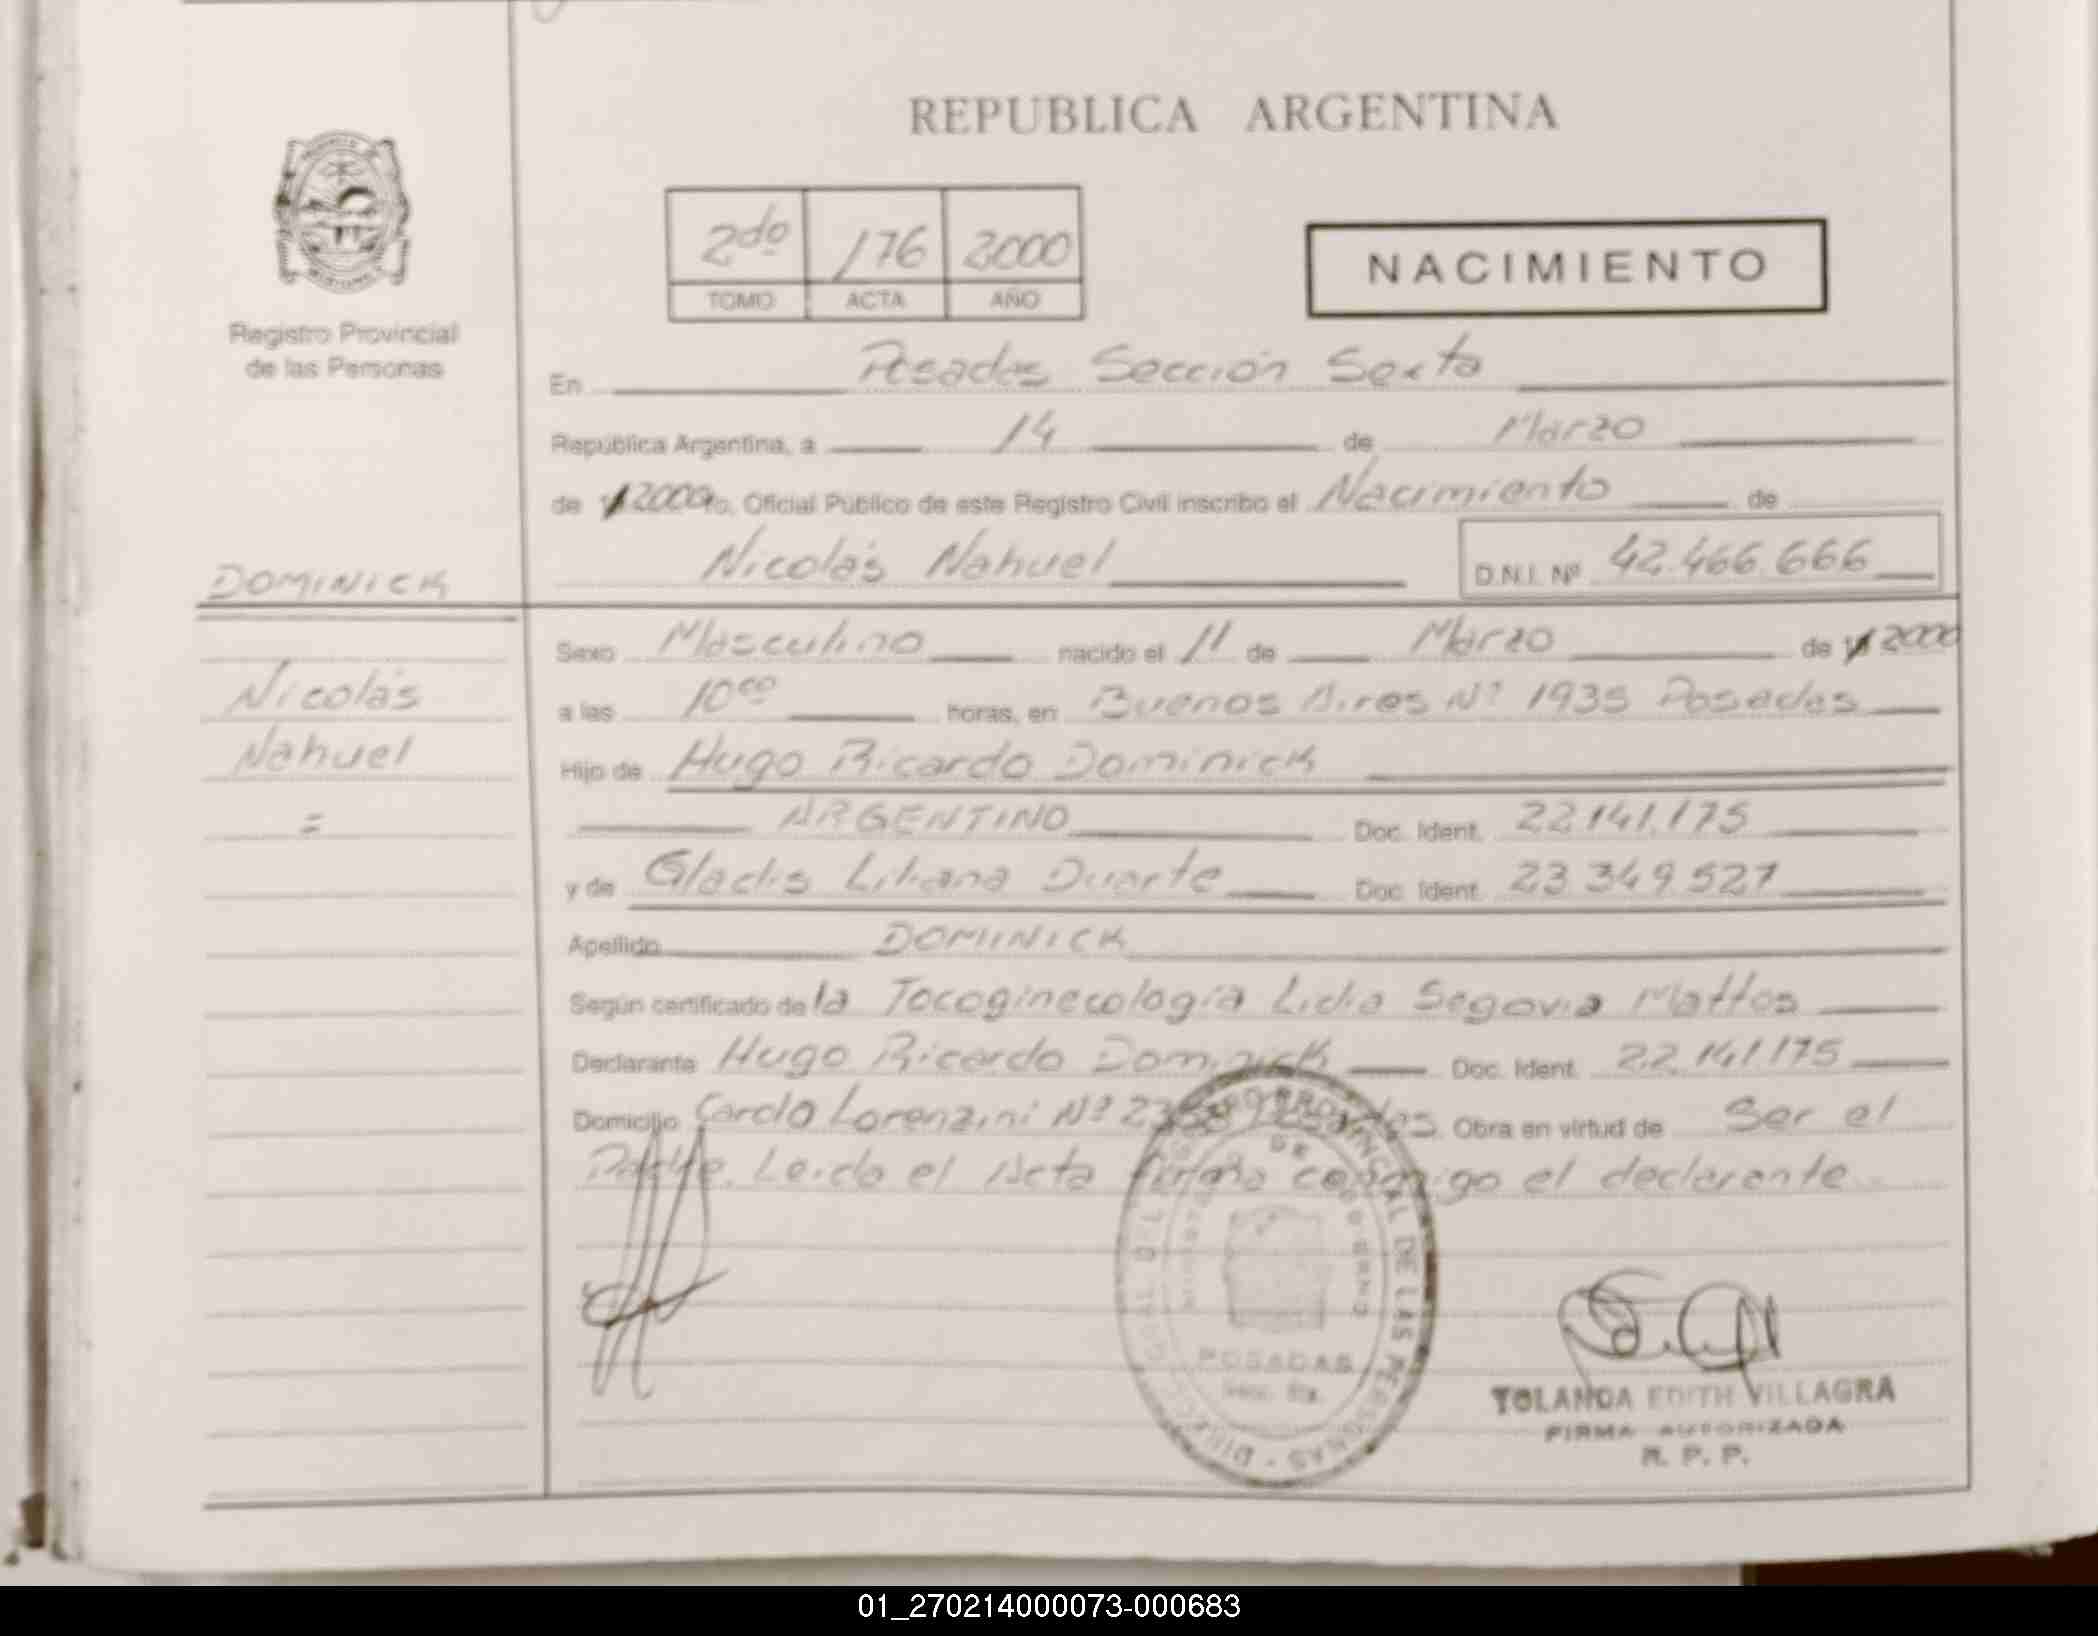 REPUBLICA ARGENTINA
2do 176 2000
TOMO ACTA AÑO
NACIMIENTO
Registro Provincial
de las Personas
En Posadas Sección Sexta
República Argentina, a 14 de Marzo
de 2000 yo, Oficial Público de este Registro Civil inscribo el Nacimiento de
Nicolás Nahuel D.N.I. Nº 42.466.666
DOMINICK
Nicolás
Nahuel
=
Sexo Masculino nacido el 11 de Marzo de 2000
a las 10 horas, en Buenos Aires Nº 1935 Posadas
Hijo de Hugo Ricardo Dominick
ARGENTINO Doc. Ident. 22.141.175
y de Gladis Liliana Duarte Doc. Ident. 23.349.527
Apellido DOMINICK
Según certificado de la Tocoginecología Lidia Segovia Mattos
Declarante Hugo Ricardo Dominick Doc. Ident. 22.141.175
Domicilio Carolo Lorenzini Nº Obra en virtud de Ser el
Padre. Leida el Acta firma conmigo el declarante
REGISTRO PROVINCIAL DE LAS PERSONAS
POSADAS
Secc. 6ta.
YOLANDA EDITH VILLAGRA
FIRMA AUTORIZADA
R. P. P.
01_270214000073-000683